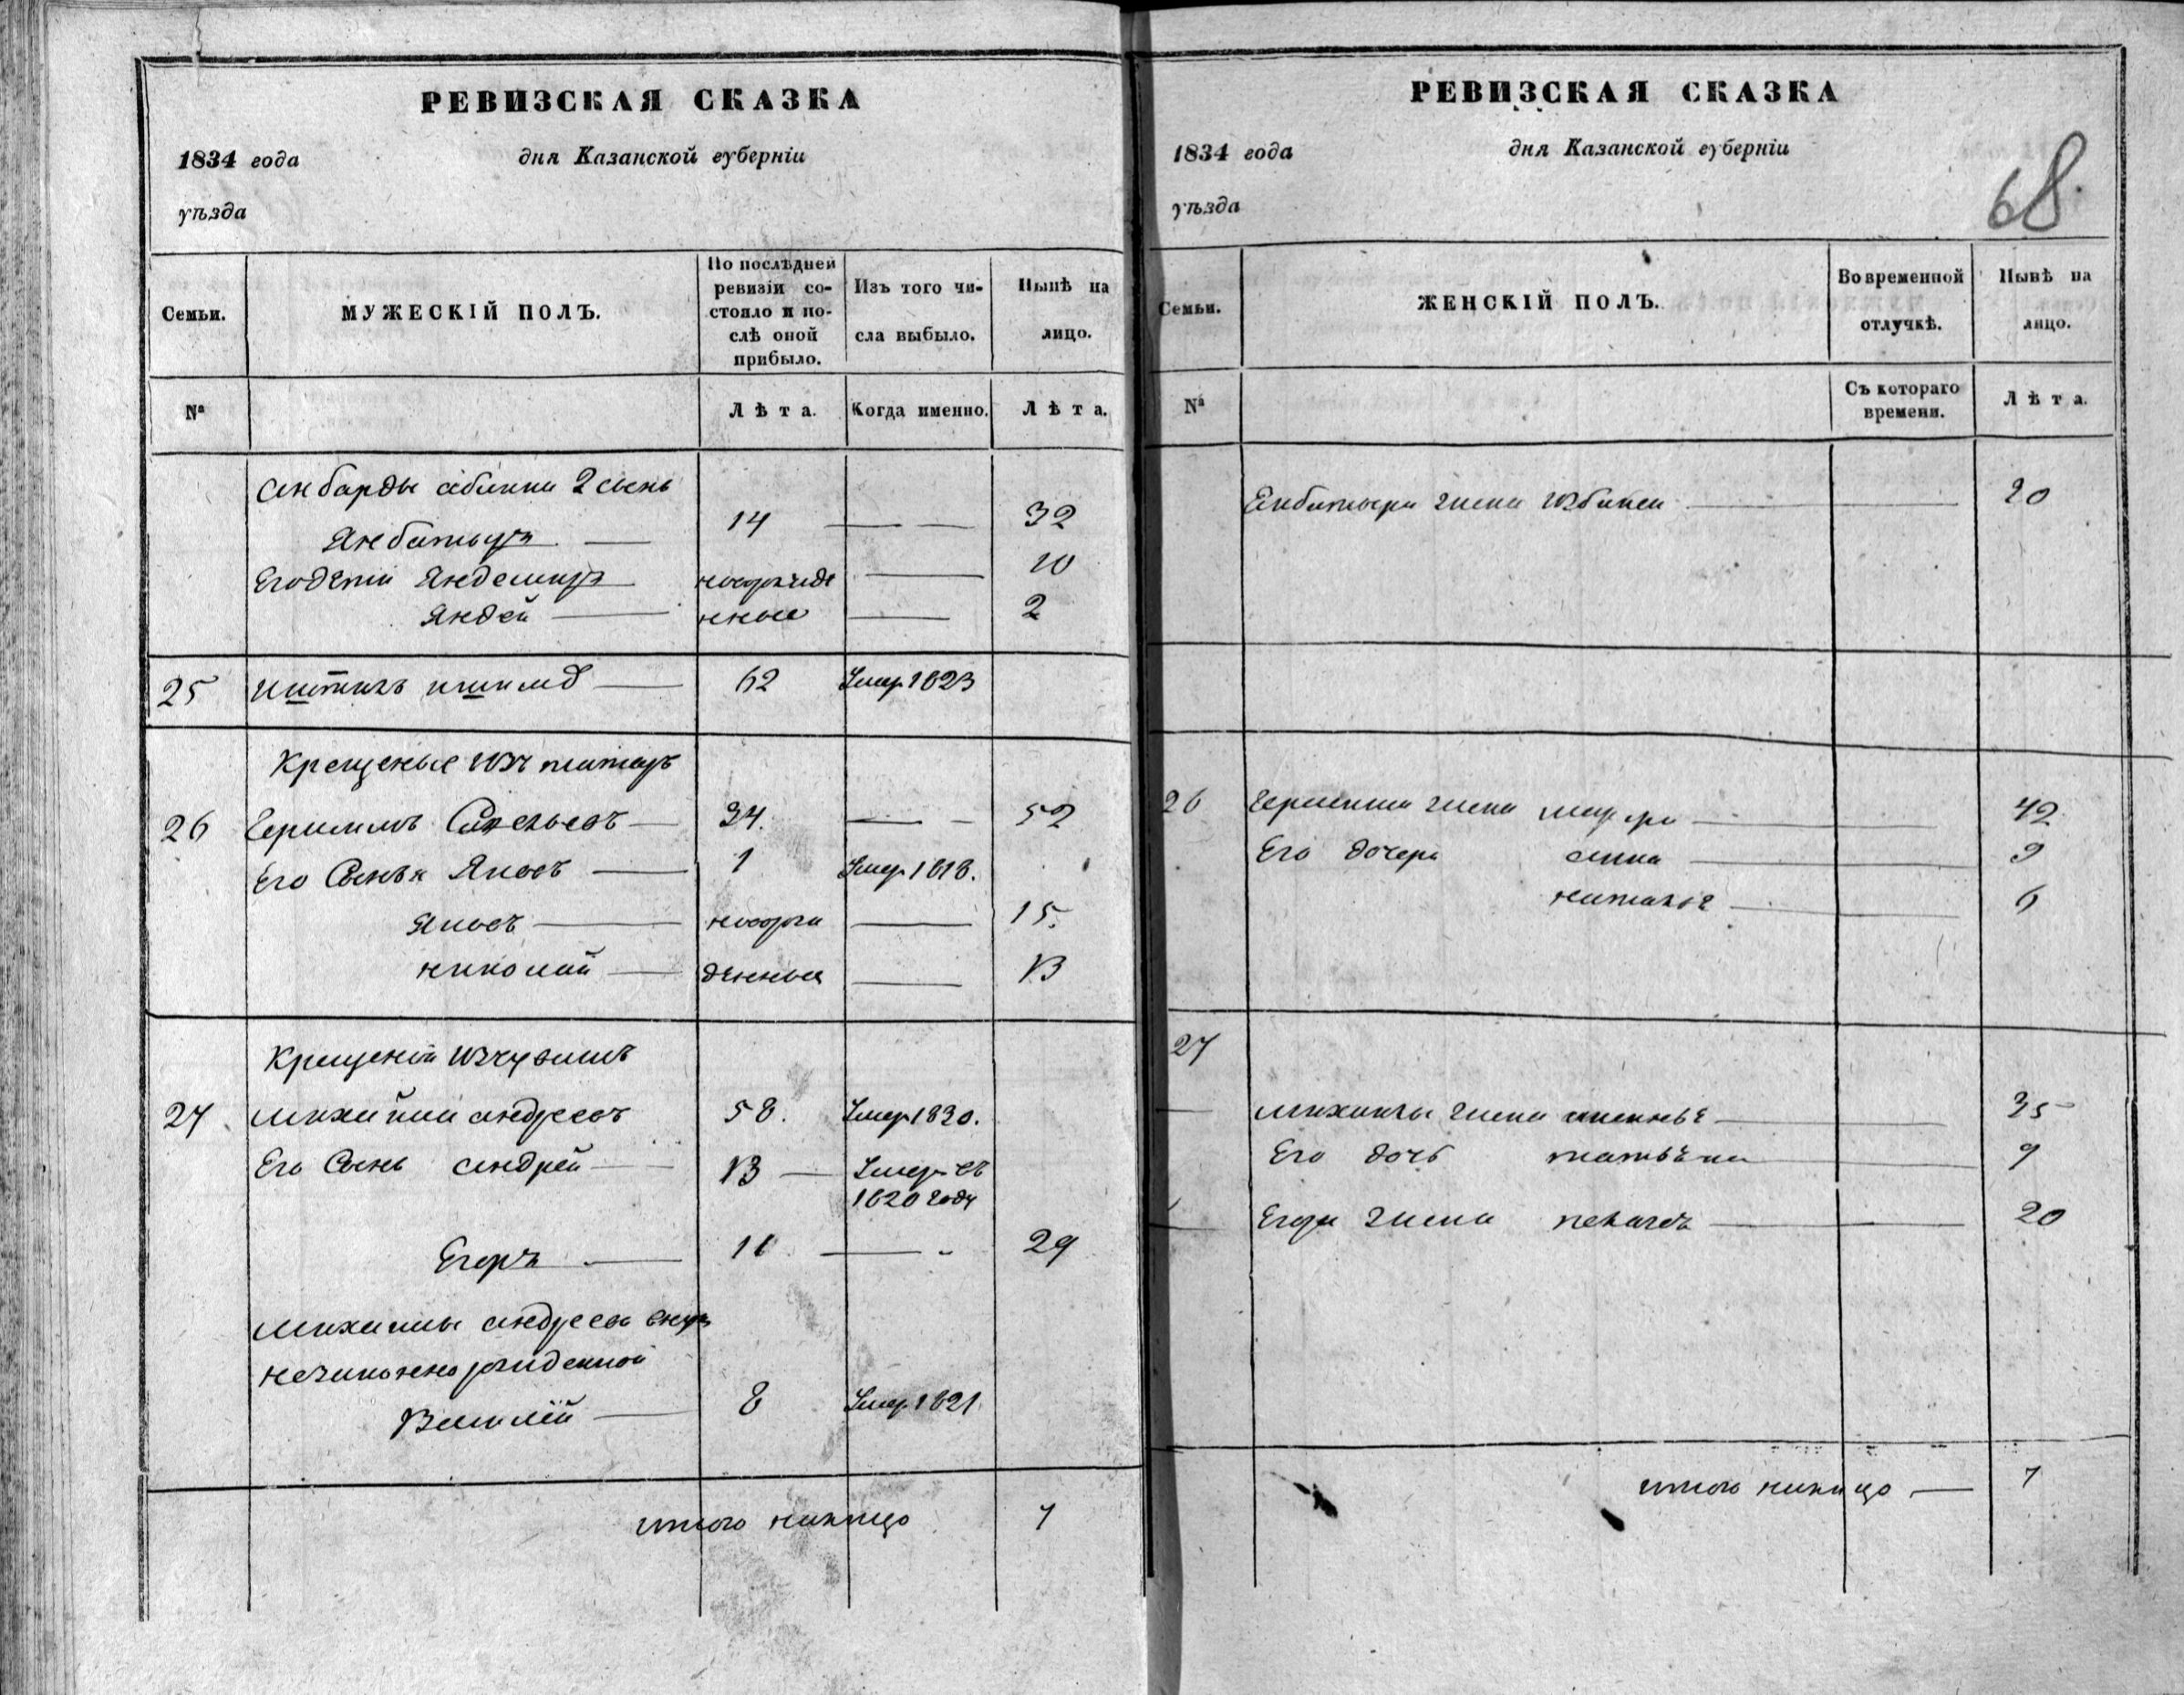 РЕВИЗСКАЯ СКАЗКА
1834 года дня Казанской губерніи
уѣзда
Семьи.
МУЖЕСКІЙ ПОЛЪ.
По послѣдней
ревизіи со-
стояло и по-
слѣ оной
прибыло.
Изъ того чи-
сла выбыло.
Нынѣ на
лицо.
№
Лѣта.
Когда именно.
Лѣта.
2 сынъ
Янбатыръ 14 32
Его дѣти Яндемиръ новорожде 10
Яндей нные 2
25 62 Умер. 1823
Крещеные изъ татаръ
26 34. 52
Его Сынья 1 Умер. 1818.
новорож 15.
николай денныя 13
Крещеній изъ чувашъ
27. андреевъ 58. Умер. 1830.
Его Сынъ андрей 13 Умеръ въ
1820 году
Егоръ 11 29
Михайлы андреева внукъ
незаконно рожденной
Василій 8 Умер. 1821
итого налицо 7
РЕВИЗСКАЯ СКАЗКА
1834 года дня Казанской губерніи
уѣзда
68.
Семьи.
ЖЕНСКІЙ ПОЛЪ.
Во временной
отлучкѣ.
Нынѣ на
лицо.
№
Съ котораго
времени.
Лѣта.
Янбатыра жена 20
26 жена 42
Его дочери анна 9
наталья 6
27
Михайлы жена 35
Его дочь татьяна 9
Егора жена 20
итого налицо 7